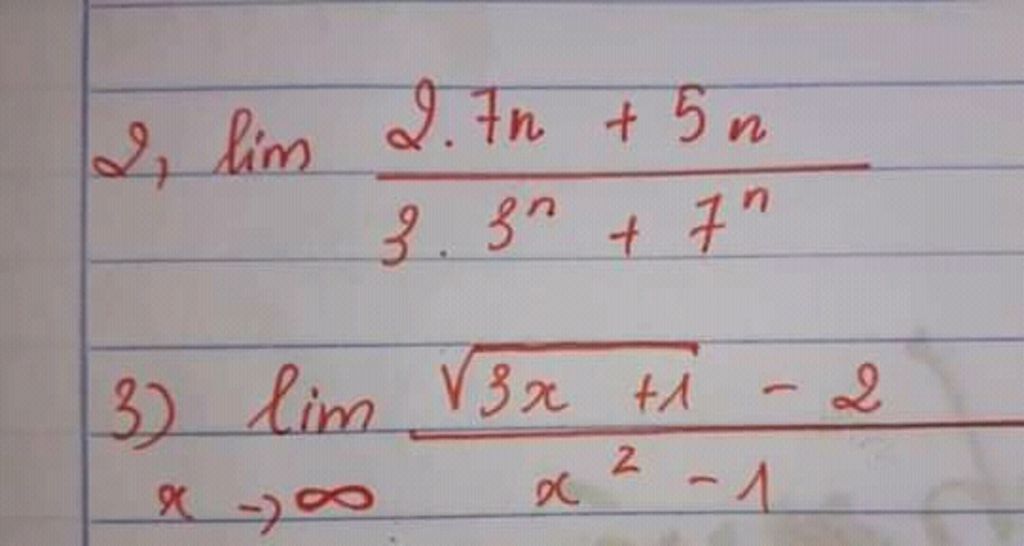 2, lim 2.7n + 5n
3. 3ⁿ + 7ⁿ
3) lim √3x +1 - 2
x -> ∞ x² - 1